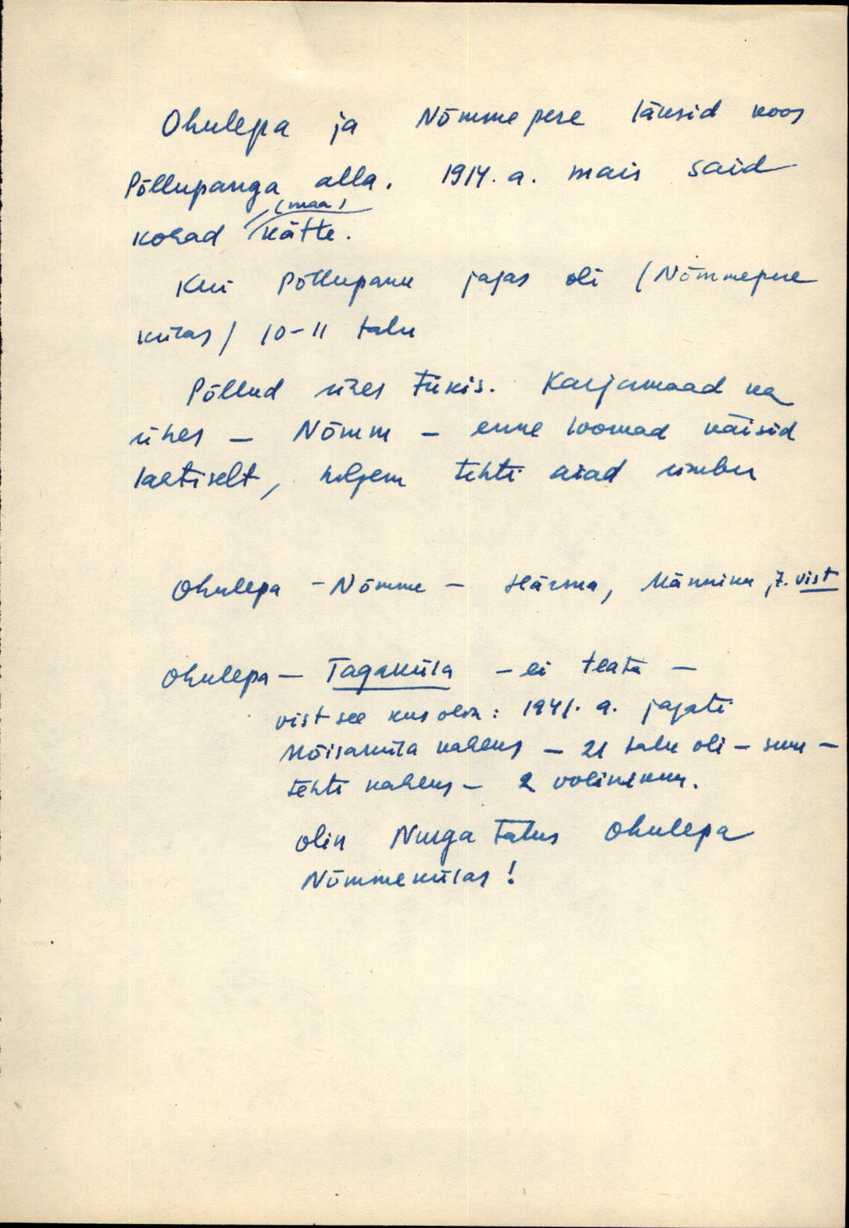 Ohulepa ja Nõmmepere läksid koos
Põllupanga alla. 1914. a. mais said
kohad (maa) kätte.
Kui Põllupank jagas oli (Nõmmepere
külas) 10-11 talu
Põllud ühes tükis. Karjamaad ka
ühes – Nõmm – enne loomad käisid
lahtiselt, hiljem tehti aiad ümber
Ohulepa – Nõmme – Härma, Männiku, J. vist
Ohulepa – Tagaküla – ei teata –
vist see kus olen: 1941. a. jagati
Mõisaküla kaheks – 21 talu oli – suu –
tehti kaheks – 2 volinikku.
olin Nurga talus Ohulepa
Nõmmekülas!